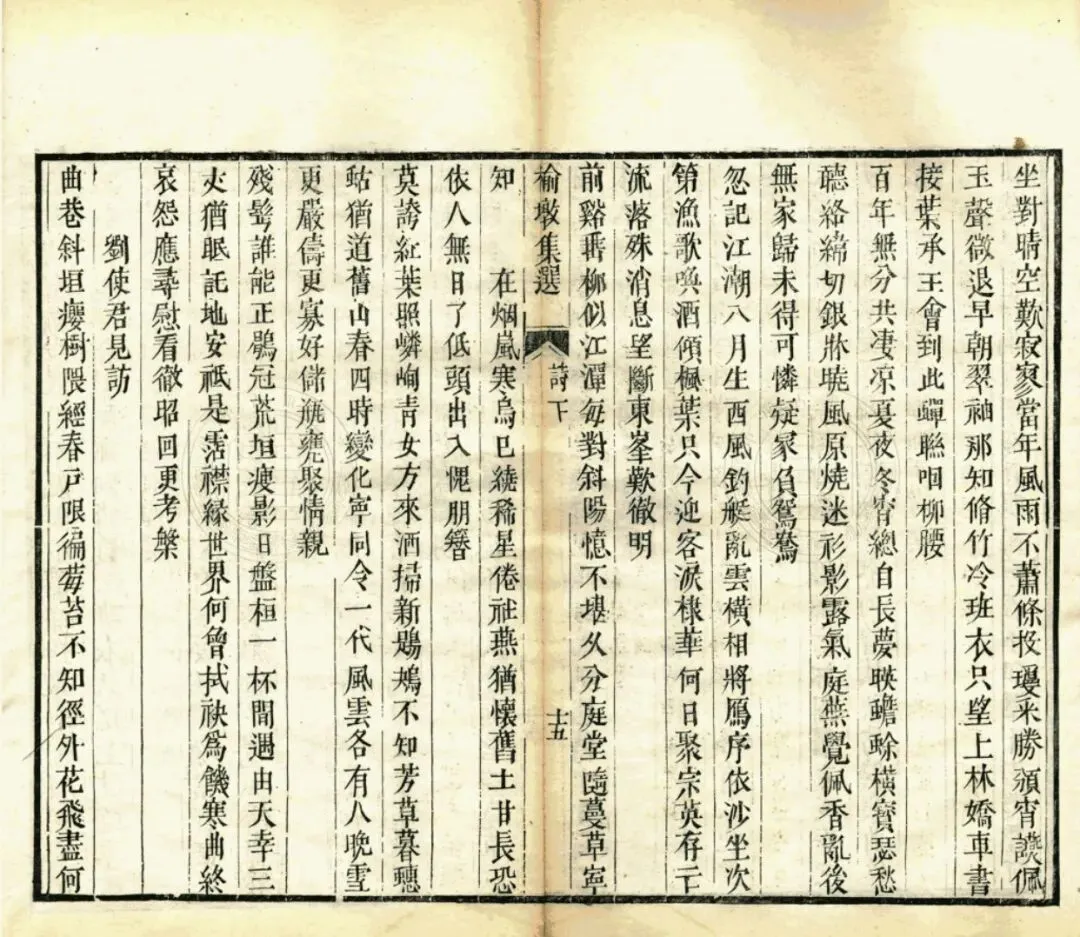 坐對晴空歎寂寥當年風雨不蕭條投瓊采勝頒宵讌佩
玉聲微退早朝翠袖那知脩竹冷班衣只望上林嬌車書
接葉承王會到此蟬聯咽柳腰
百年無分共凄凉夏夜冬宵總自長夢暎蟾蜍橫寶瑟愁
聽絡緯切銀牀曉風原燒迷衫影露氣庭蕪覺佩香亂後
無家歸未得可憐疑冢負鴛鴦
忽記江潮八月生西風釣艇亂雲橫相將鴈序依沙坐次
第漁歌喚酒傾楓葉只今迎客淚棣華何日聚宗英存亡
流落殊消息望斷東峯歎徹明
前谿垂柳似江潭每對斜陽憶不堪久分庭堂隨蔓草寧
榆墩集選
詩下
十五
知 在烟嵐寒烏已繞稀星倦社燕猶懷舊土甘長恐
依人無日了低頭出入愧朋簪
莫誇紅葉照嶙峋青女方來洒掃新鶗鴂不知芳草暮蟪
蛄猶道舊山春四時變化寧同令一代風雲各有人晚雪
更嚴儔更寡好儲甁甕聚情親
殘髩誰能正鶡冠荒垣瘦影日盤桓一杯閒遇由天幸三
尖猶眠託地安祗是霑襟緣世界何曾拭袂爲饑寒曲終
哀怨應尋慰看徹昭回更考槃
劉使君見訪
曲巷斜垣癭樹隈經春戸限徧莓苔不知徑外花飛盡何